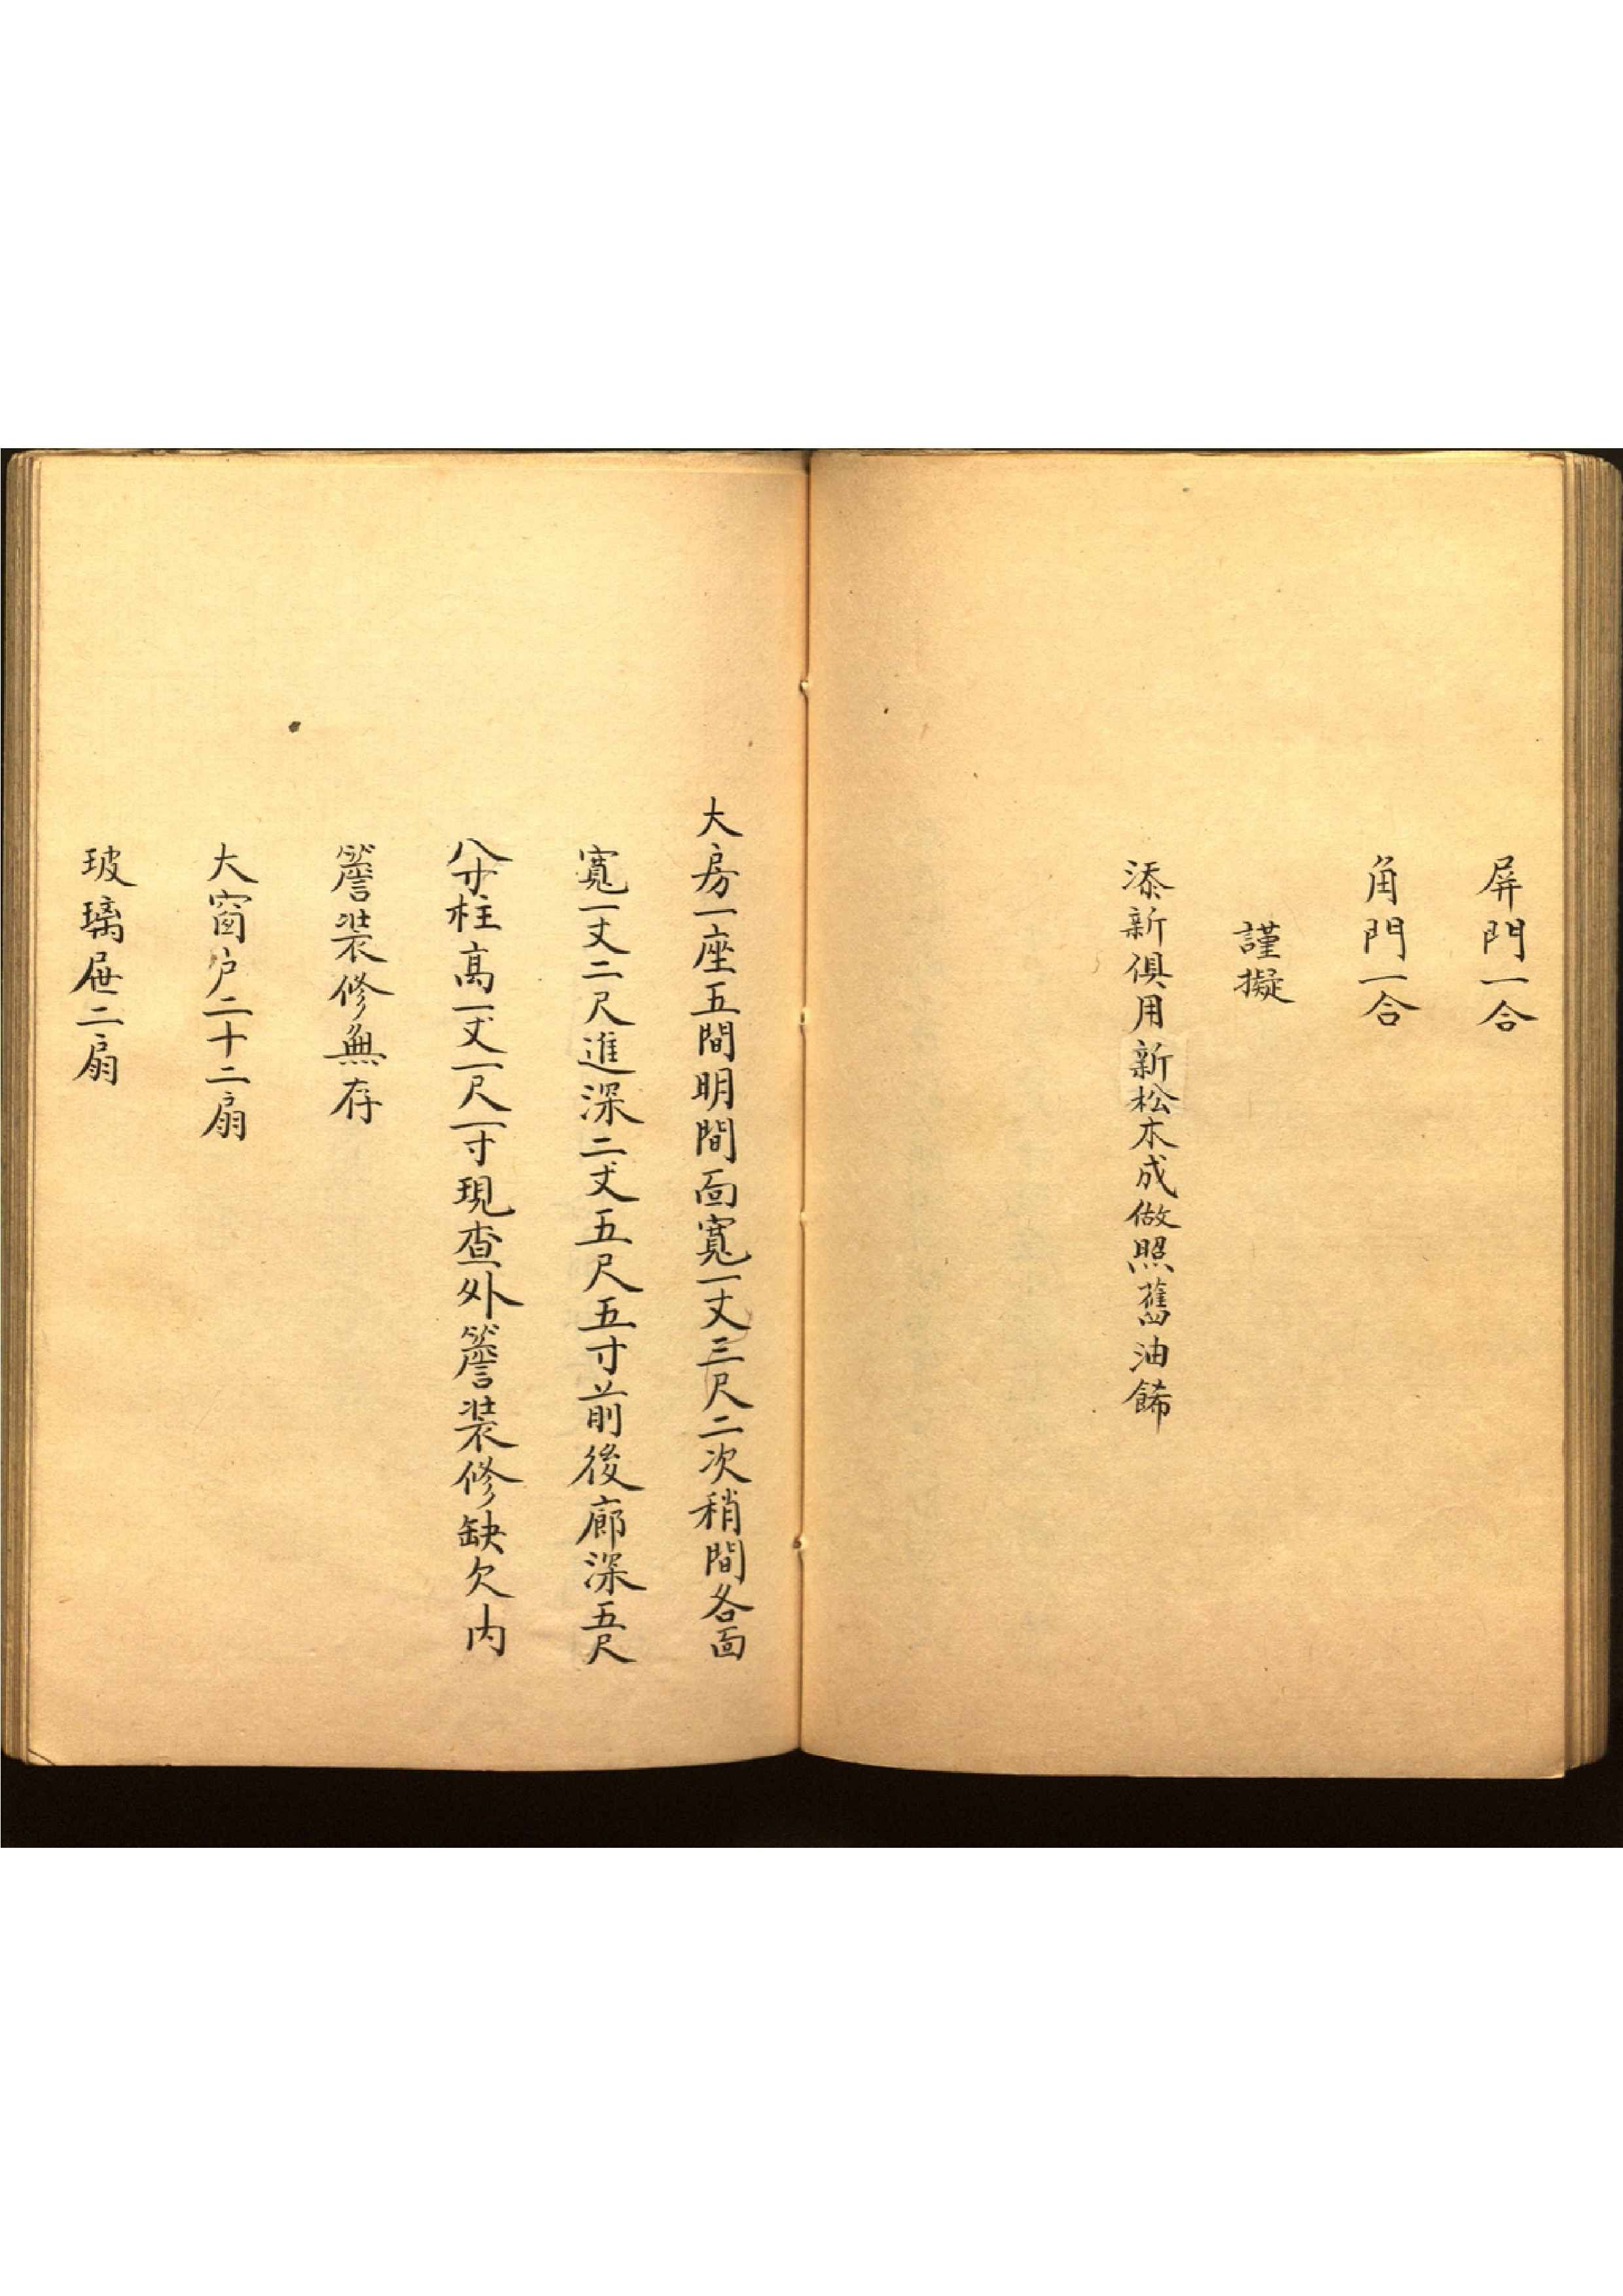 屏門一合
角門一合
謹擬
添新俱用新松木成做照舊油餙
大房一座五間明間面寬一丈三尺二次稍間各面
寬一丈二尺進深二丈五尺五寸前後廊深五尺
八寸柱高一丈一尺一寸現查外簷裝修缺欠内
簷裝修無存
大窗户二十二扇
玻璃屉二扇